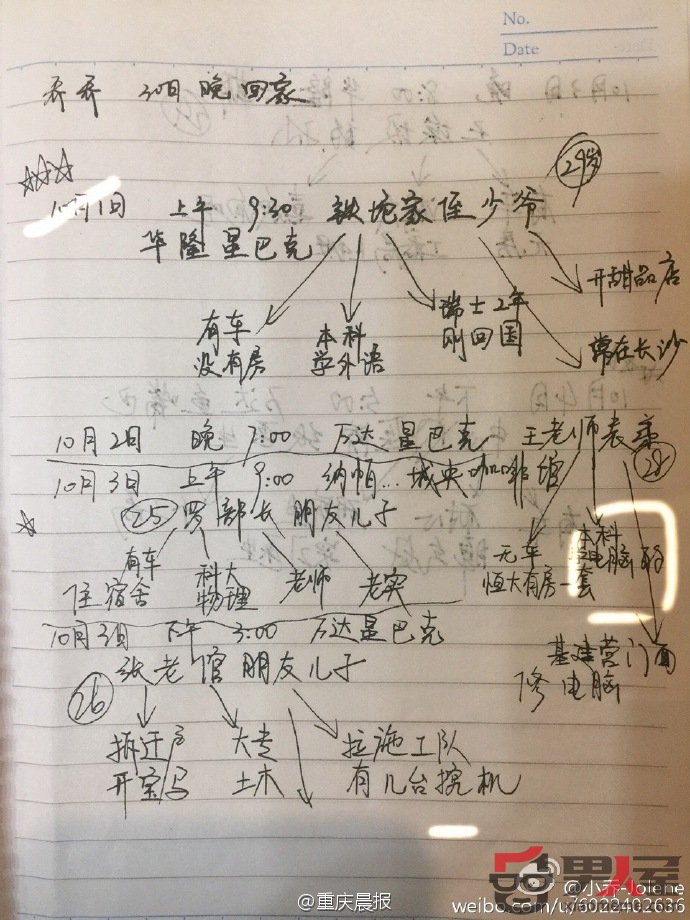 No.
Date
乔乔 30日 晚 回家
☆☆☆
10月1日 上午 9:30 铁坨家侄少爷 29岁
华隆星巴克
有车
没有房
本科
学外语
瑞士2年
刚回国
开甜品店
常在长沙
10月2日 晚 7:00 万达星巴克 王老师表弟 28
无车
恒大有房一套
本科
电脑
基建营门面
修电脑
10月3日 上午 9:00 纳帕...城央咖啡馆
☆ 25 罗部长 朋友儿子
有车
住宿舍
科大
物理
老师
老实
10月3日 下午 3:00 万达星巴克
26 张老馆 朋友儿子
拆迁户
开宝马
大专
土木
拉施工队
有几台挖机
男人屋
@小乔-Jolene
@重庆晨报
weibo.com/u/6022402636